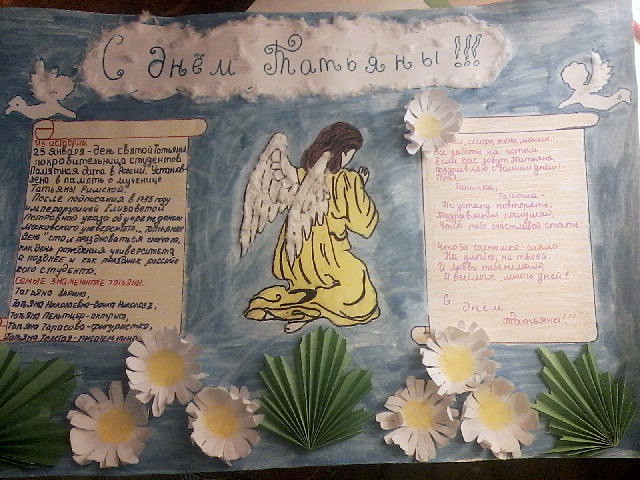 С днём Татьяны!!!
Из истории
25 января - день Святой Татьяны
покровительница студентов.
Памятная дата в России. Установ-
лено в память о мученице
Татьяны Римской.
После подписания в 1755 году
императрицей Елизаветой
Петровной указа об учреждении
Московского университета, "Татьянин
день" стал праздноваться сначала,
как день рождения университета,
а позднее и как праздник россий-
ского студента.
Самые знаменитые Татьяны.
Татьяна Ларина,
Татьяна Николаевна - дочка Николая II,
Татьяна Пельтцер - актриса,
Татьяна Тарасова - фигуристка,
Татьяна Толстая - писательница
сестры, жены, мамы.
Все заботы на потом
Если вас зовут Татьяна,
Поздравляю с Вашим днём!
Танечка,
Танюша -
Не устану повторять.
Поздравления послушай,
Чтобы тебе счастливой стать.
Чтобы солнышко сияло
На улыбке, на твоей.
И любви тебе немало
И весёлых много дней!
С
днём
Татьяны!!!